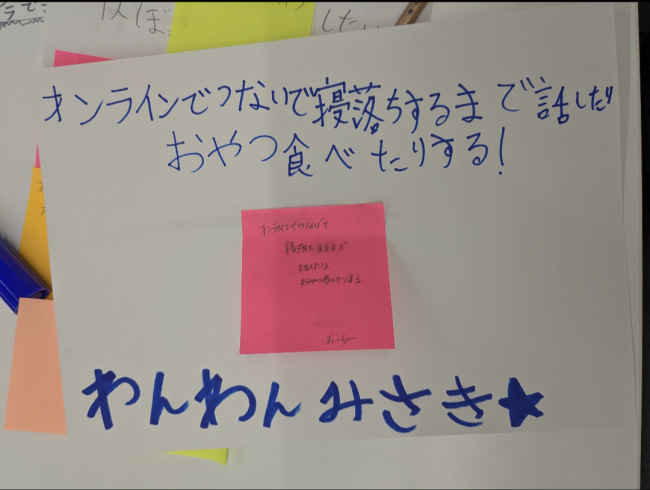 オンラインでつないで寝落ちするまで話したり
おやつ食べたりする!
オンラインでつなげて
寝落ちするまで
話したり
おやつ食べたりする
わんわんみさき★